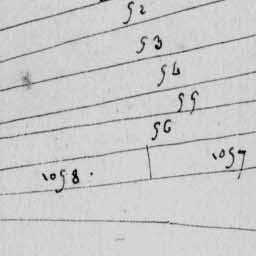 52
53
54
55
56
1057
1058.